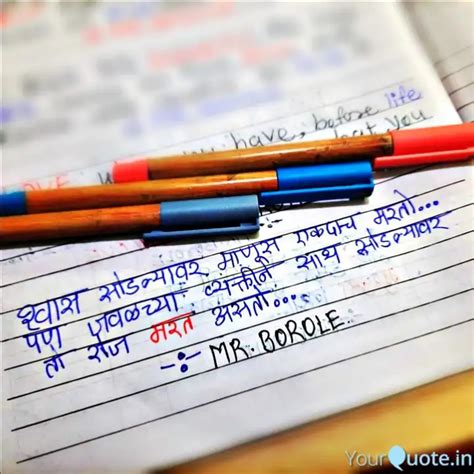 have, before life
that you
श्वास सोडल्यावर माणूस एकदाच मरतो...
पण जवळच्या व्यक्तीने साथ सोडल्यावर
तो रोज मरत असतो....
-:- MR. BOROLE
YourQuote.in